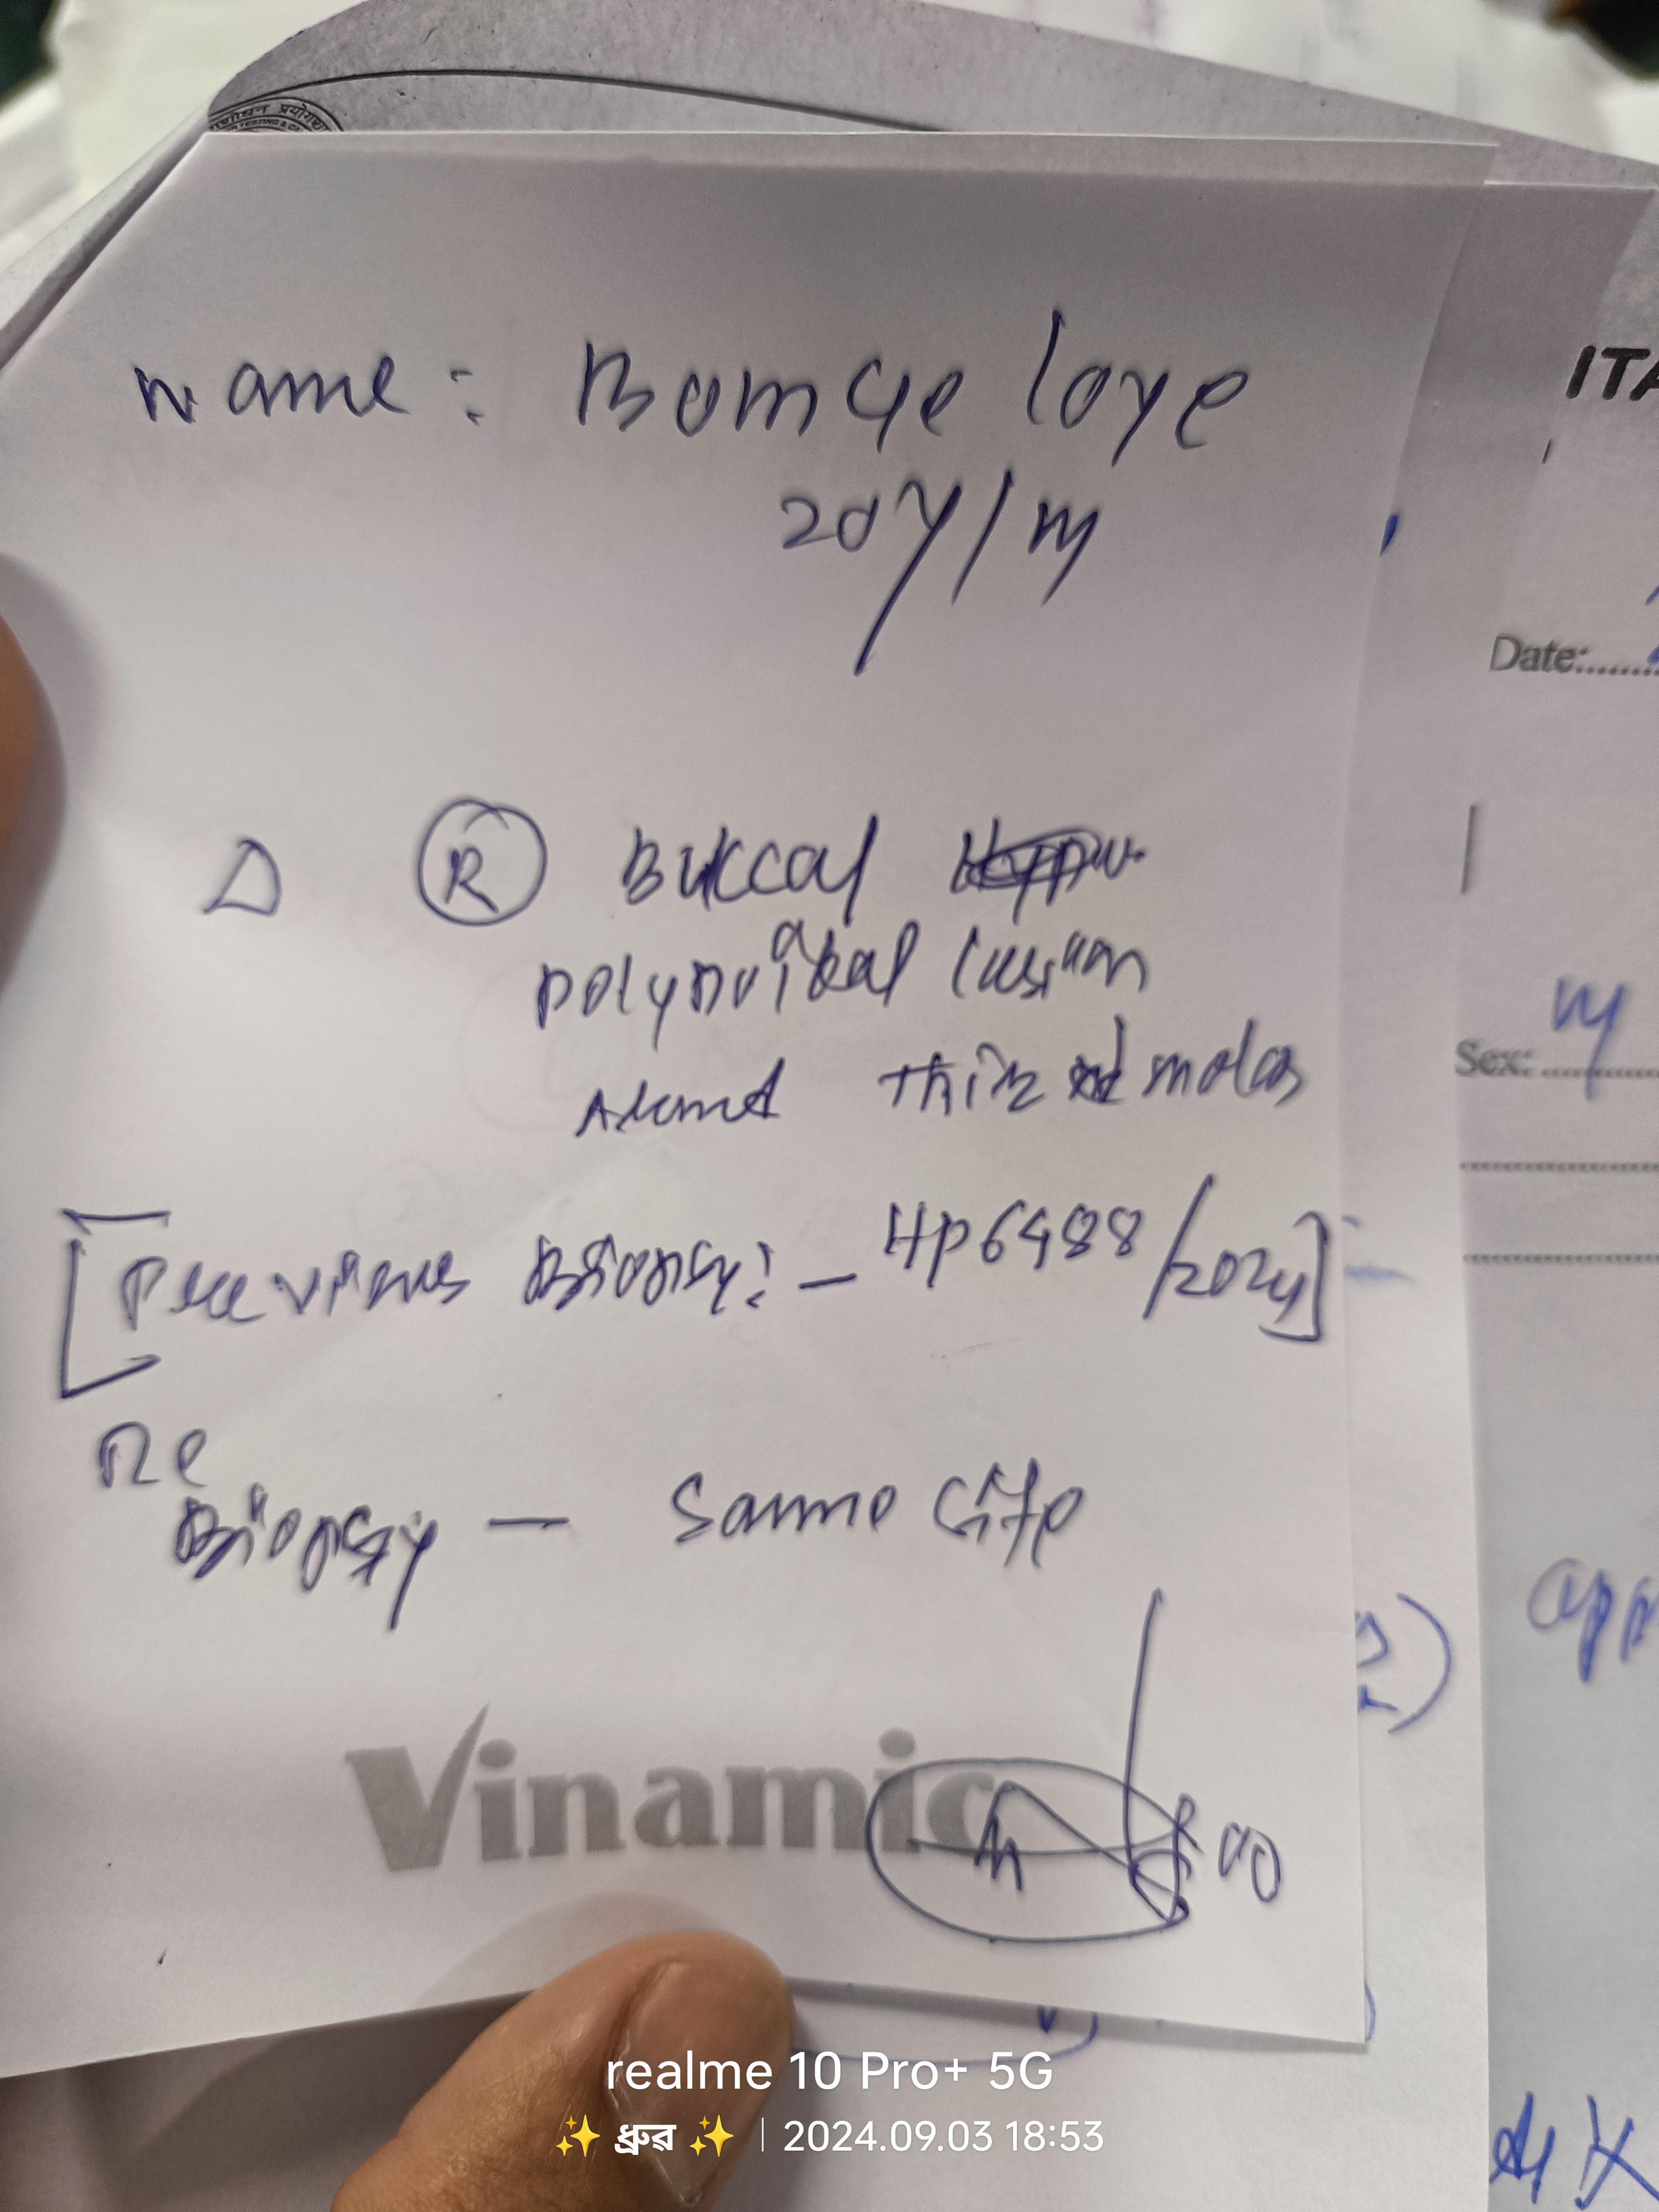 Name: Bomge loye
20Y/M
Δ Ⓡ Buccal
polypoidal lesion
Around Third molar
[Previous Biopsy: - HP6488/2024]
Re
Biopsy - Same Site
Vinamic
ITA
Date:
Sex: M
app
realme 10 Pro+ 5G
✨ ধ্রুব ✨ | 2024.09.03 18:53